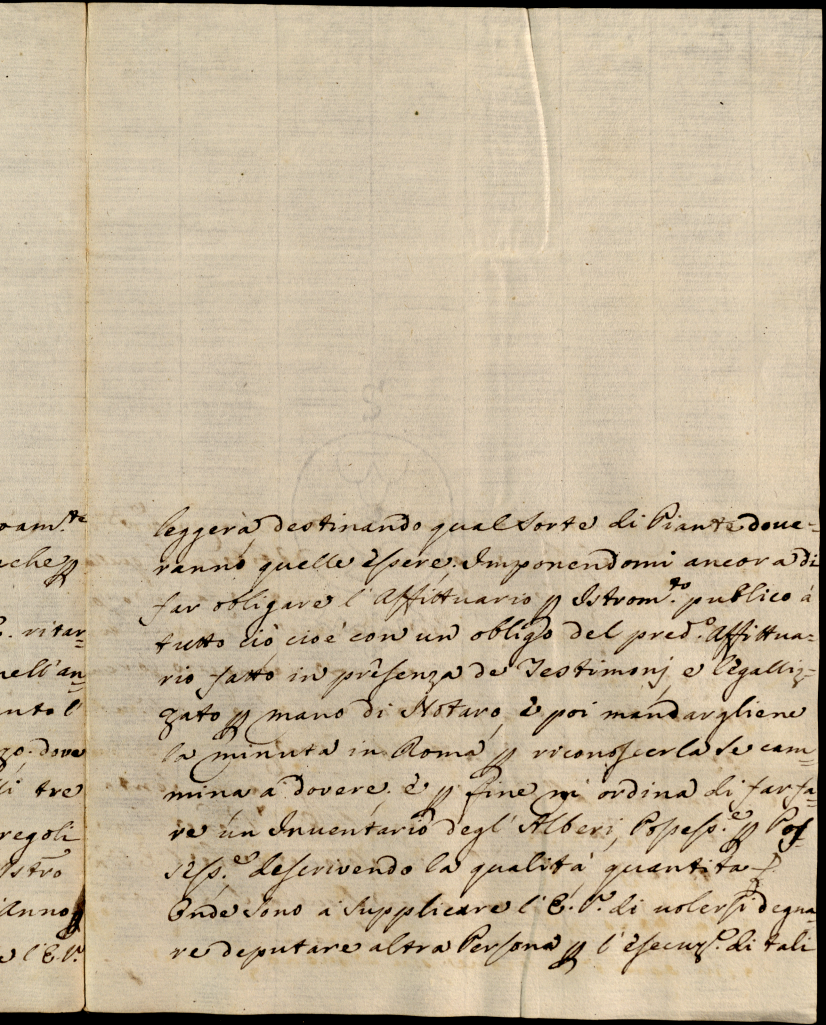 oam.te
che p
. ritar-
nell'an-
nto l
zo. dove
li tre
regoli
stro
Anno p
e l'E.V.
leggerà destinando qual sorte di Piante doue-
ranno quelle èssere. Imponendomi ancora di
far obligare l'Affittuario p Istrom.to publico à
tutto ciò cioè con un obligo del pred.o Affittua-
rio fatto in presenza de Testimonj, e legalliz-
zato p mano di Notaro, è poi mandargliene
la minuta in Roma p riconoscerla se cam-
mina à dovere. è p fine mi ordina di far fa-
re un Inuentario degl'Alberi, Possess.e p Pos-
sess.e descrivendo la qualità quantità
Onde sono à supplicare l'E.V. di uolersi degna-
re deputare altra Persona p l'esecuz.e di tali